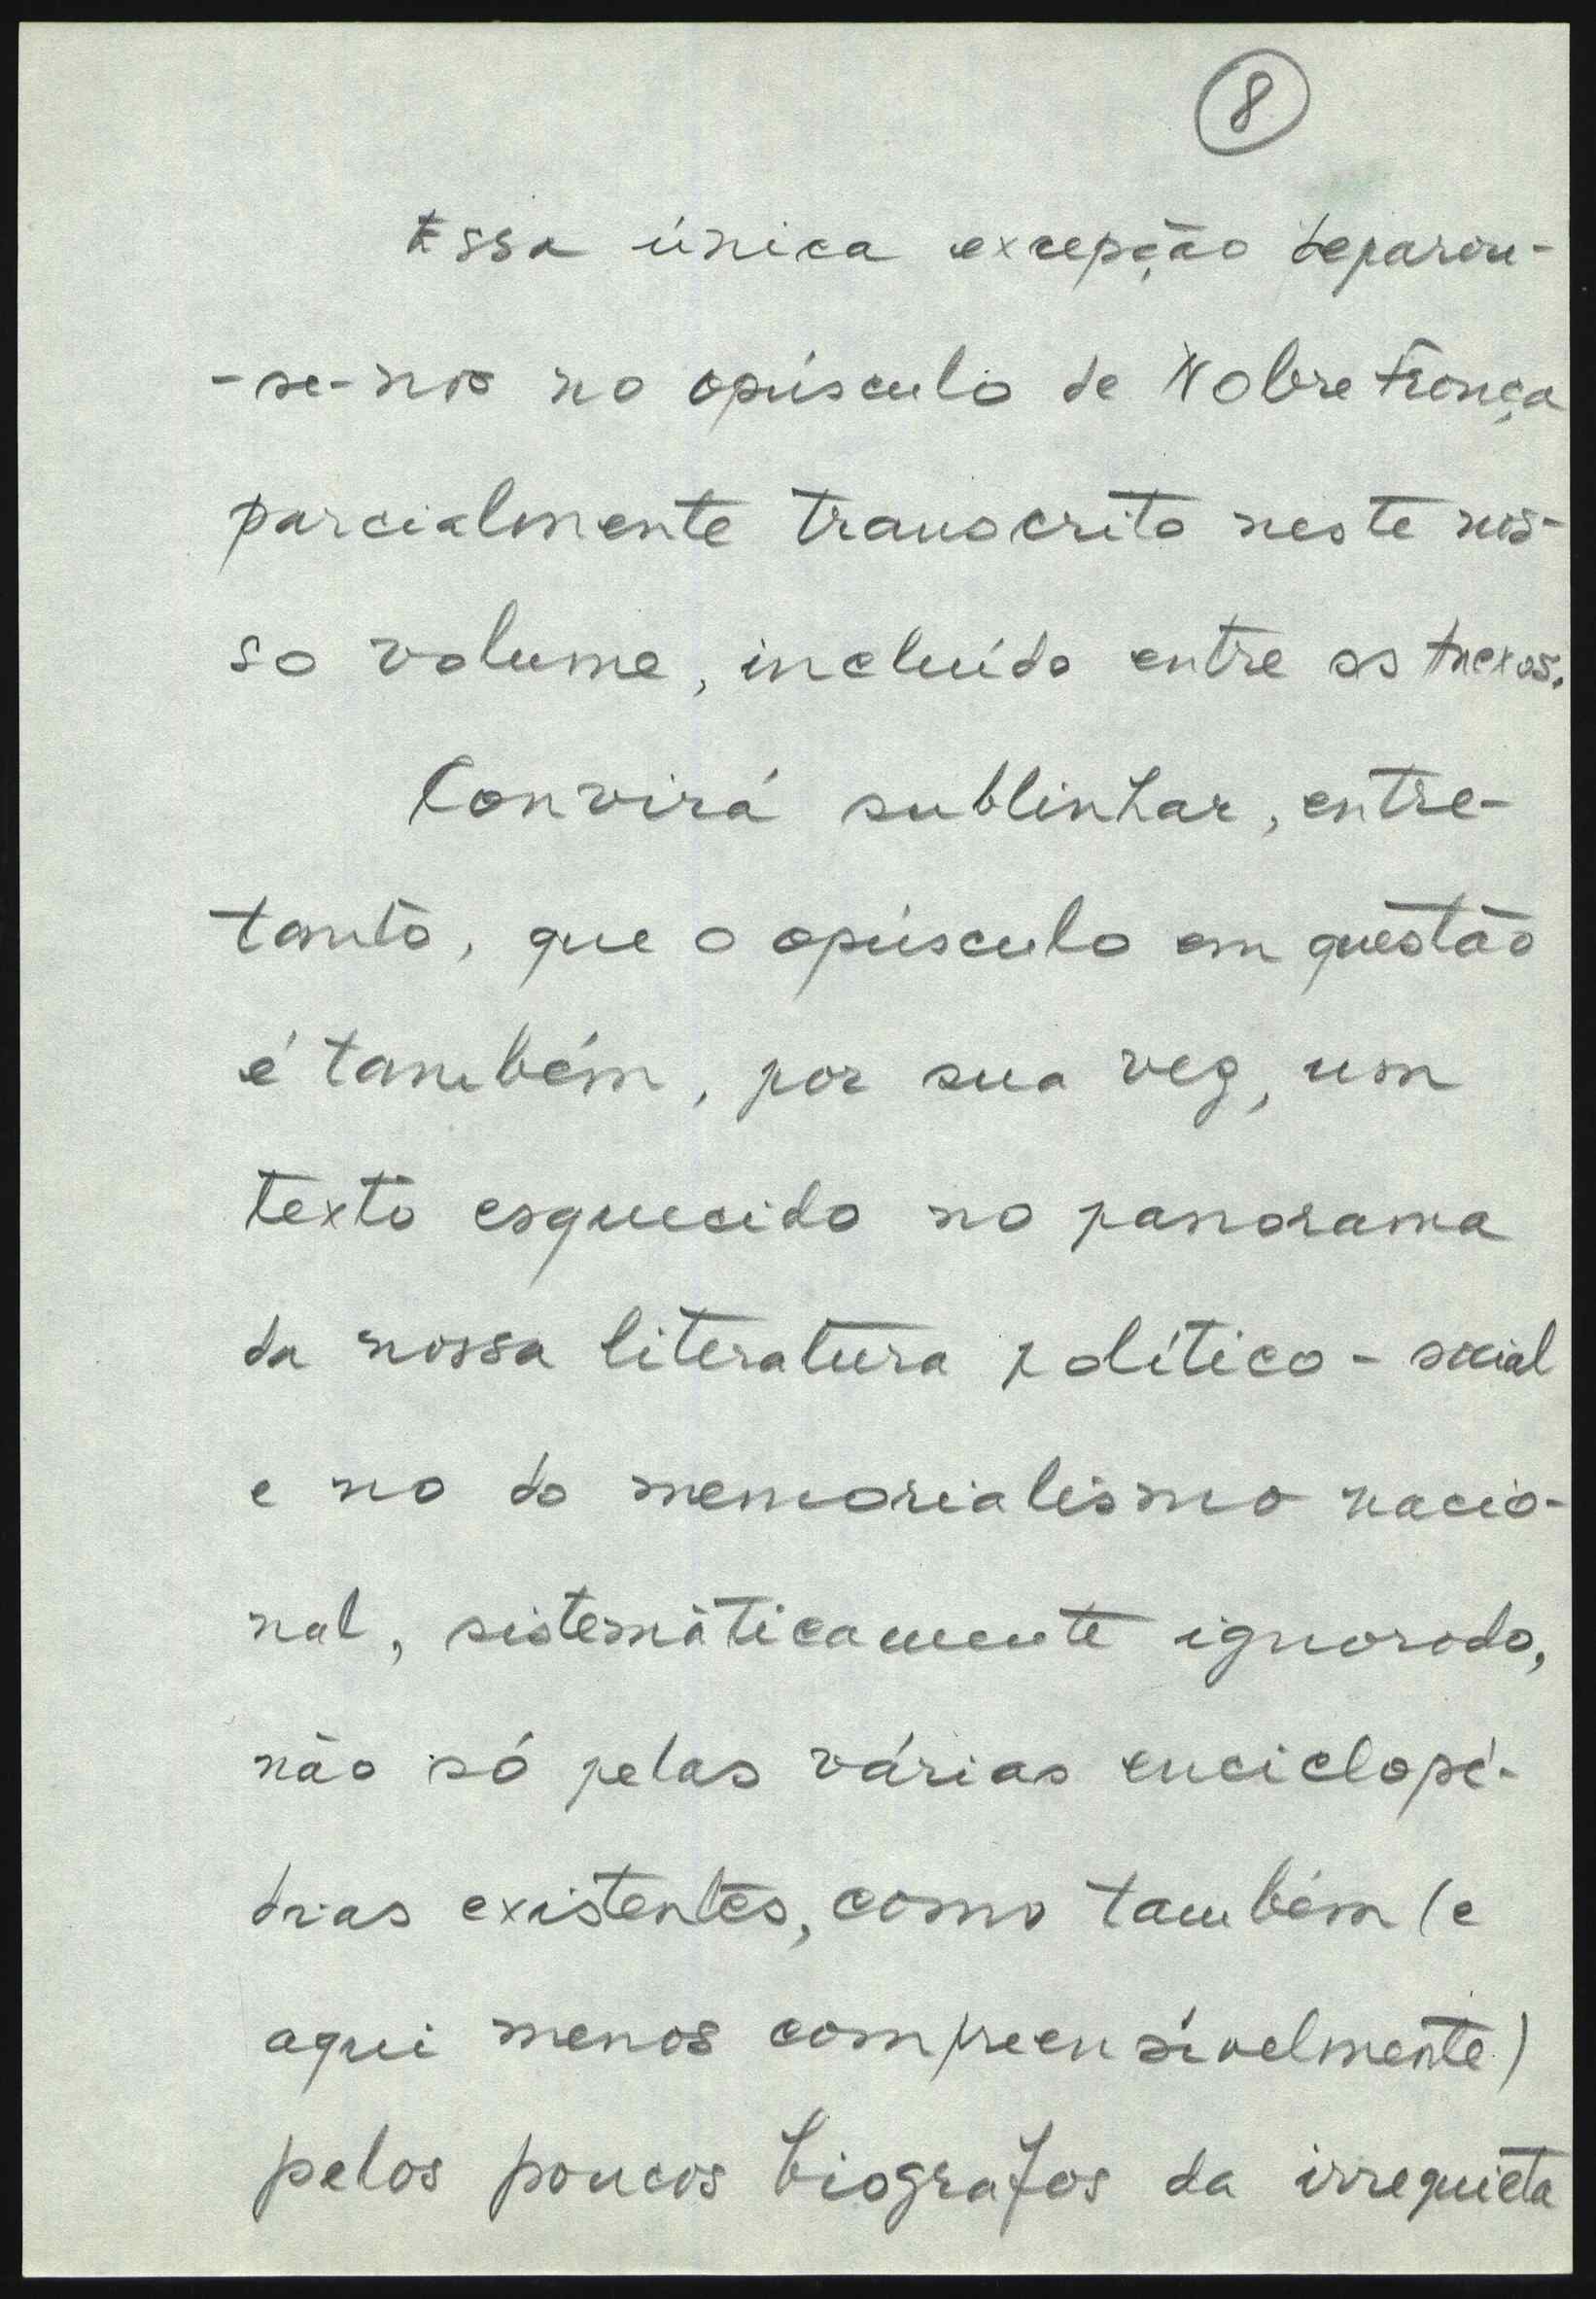 8
Essa única excepção deparou-
-se-nos no opúsculo de Nobre França
parcialmente transcrito neste nos-
so volume, incluído entre os Anexos.
Convirá sublinhar, entre-
tanto, que o opúsculo em questão
é também, por sua vez, um
texto esquecido no panorama
da nossa literatura político-social
e no do memorialismo nacio-
nal, sistemàticamente ignorado,
não só pelas várias enciclopé-
dias existentes, como também (e
aqui menos compreensívelmente)
pelos poucos biografos da irrequieta